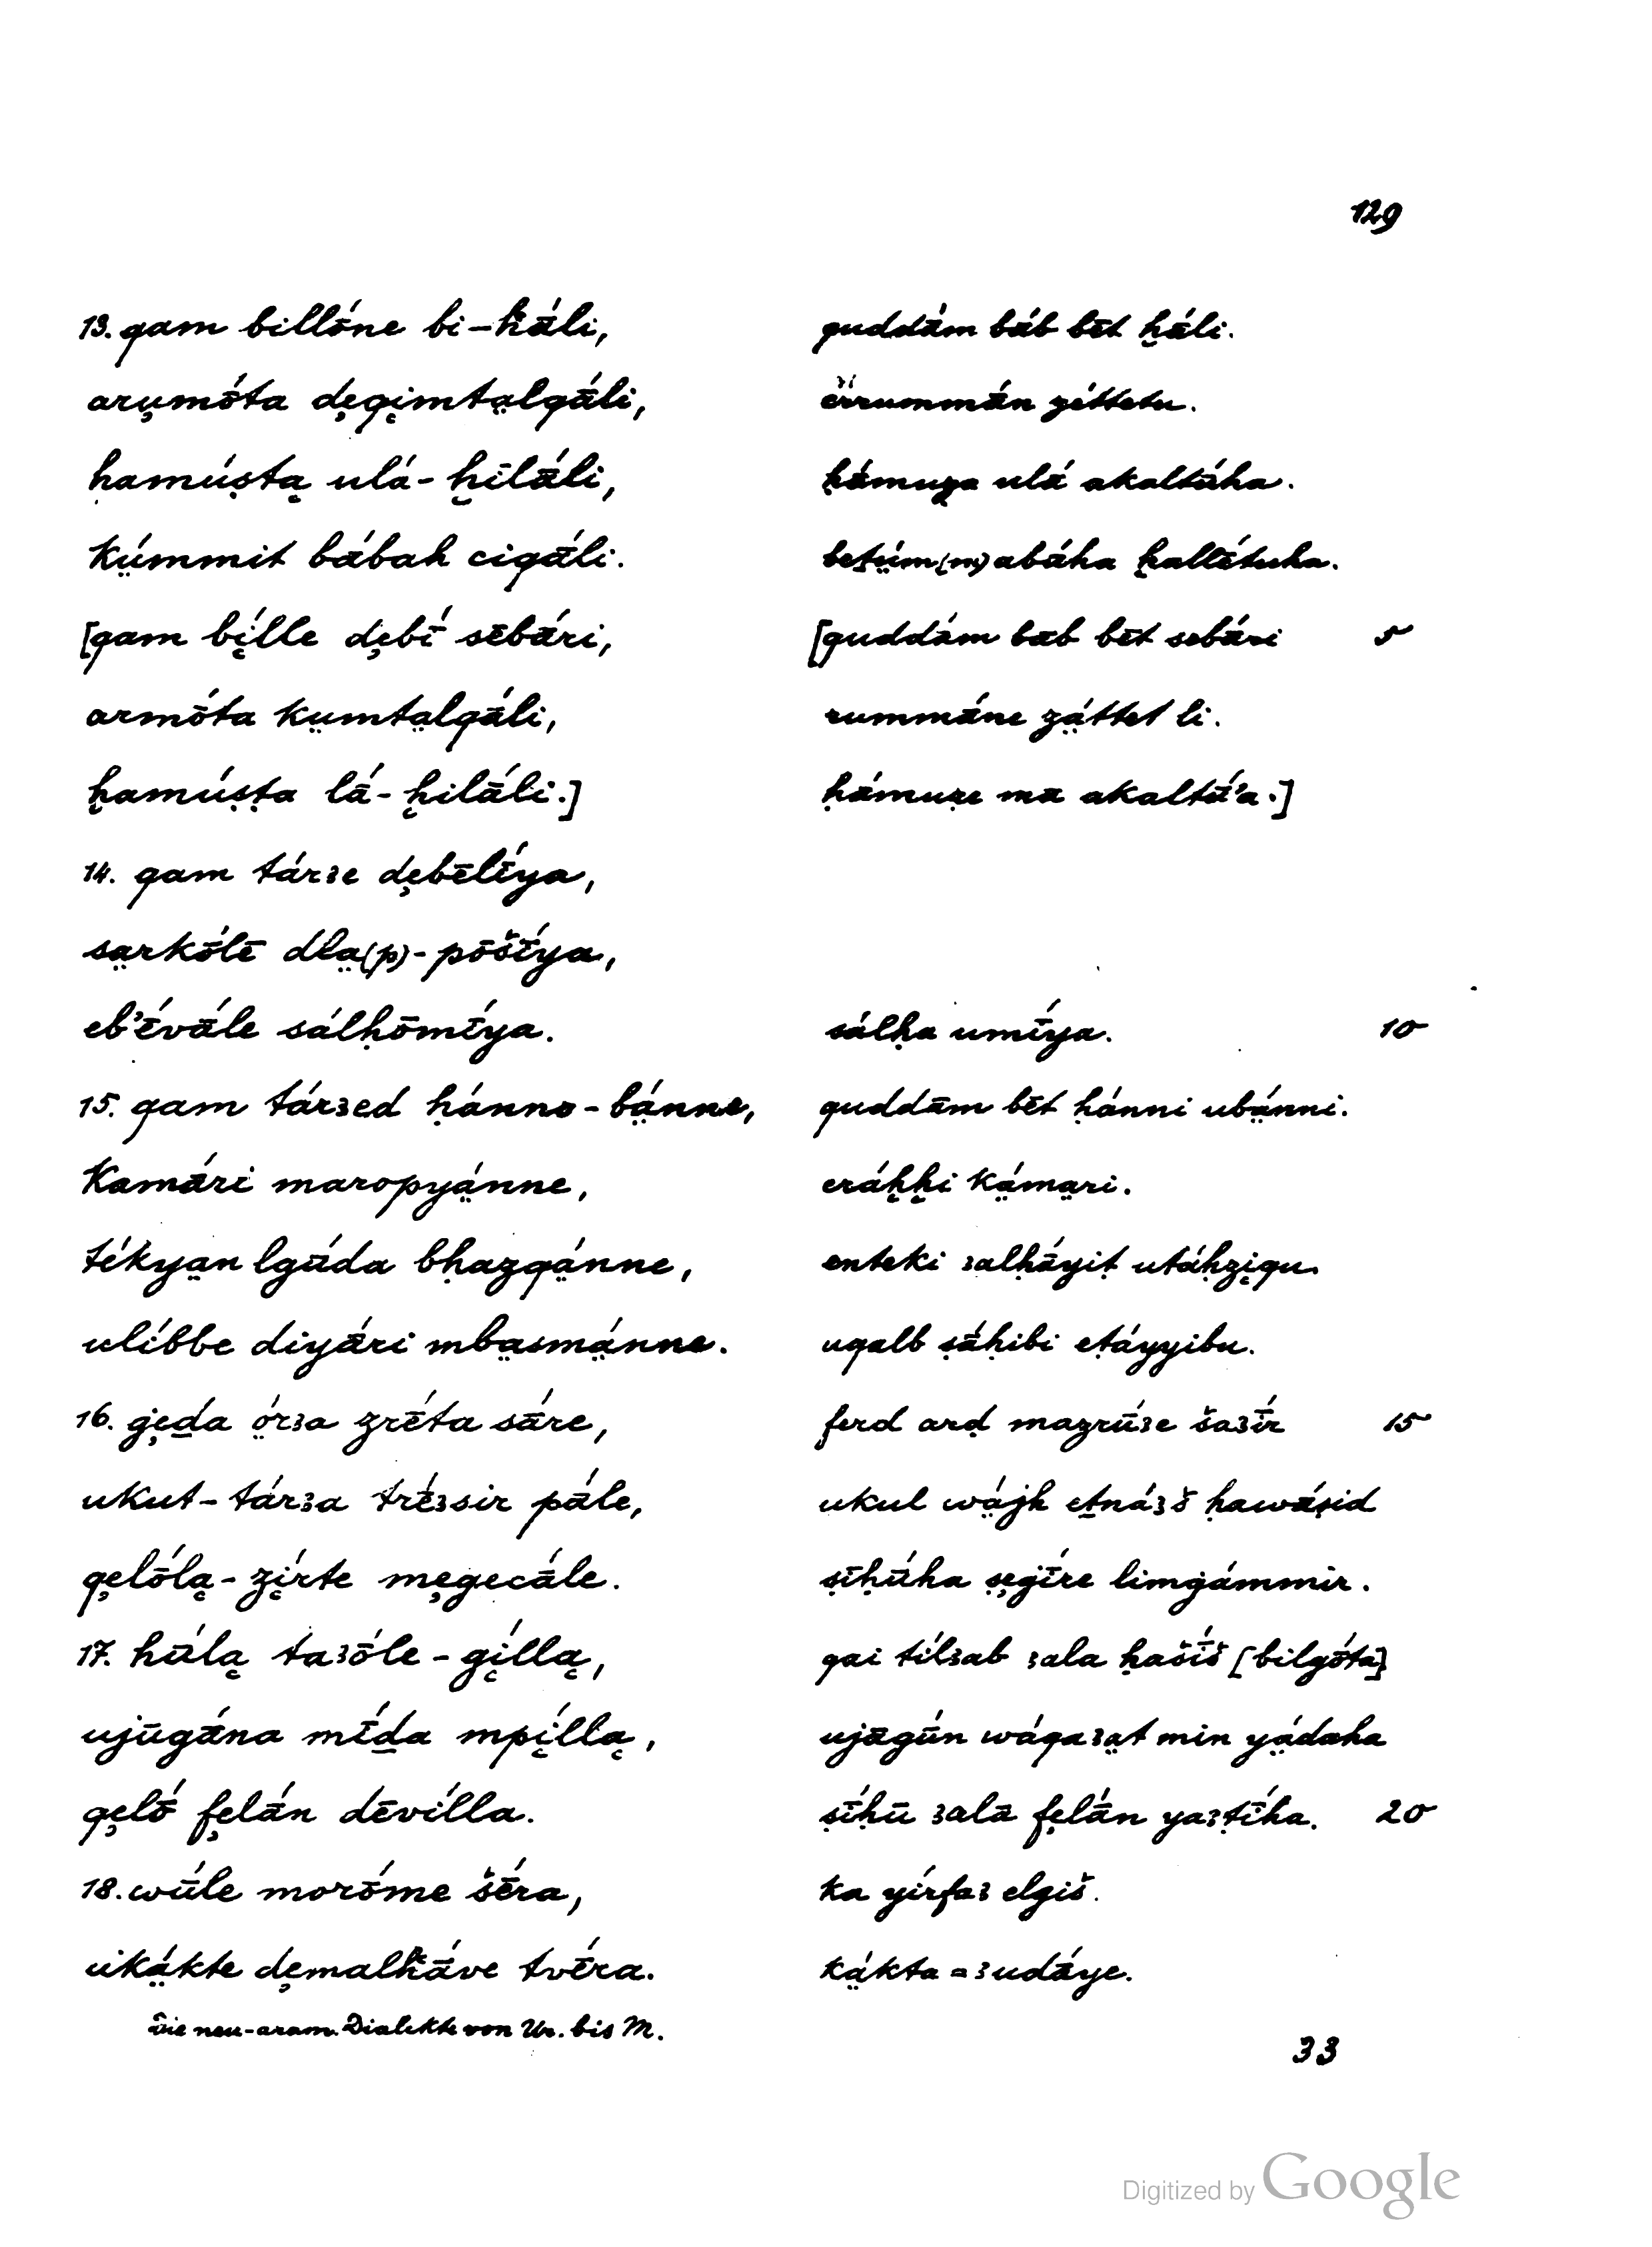 129
13. qam billṓne bi-ḫā́li, quddā́m bāb bēt ḫā́li.
aru̧mṓta dȩqi̧mta̤lqā́li, ērrummān zéttetu.
ḥamúṣtą ulá-ḫīlā́li, ḥā́muẓa ulā akaltū́ha.
kṳ́mmit bā́bah ciqā́li. beṭṳ́m(m) abā́ha ḫallḗtuha.
[qam bi̧lle dȩbī́ sēbā́ri, [quddā́m bab bēt sebā́ri 5
armṓta kṳmta̤lqā́li, rummā́ne za̤ttet li.
ḫamúṣṭa lā́-ḫilā́li.] ḥā́muẓe mā akaltū́'a.]
14. qam tárꜫe dȩbēlī́ya,
sa̤rkṓlē dla̤(p)-pōšī́ya,
eb'ḗvāle sálḥōmī́ya. sálḥa umī́ya. 10
15. qam tárꜫed ḥánne-ba̤nne, quddām bēt ḥánni uba̤nni.
kamā́ri maropya̤nne, erā́ḫḫi ka̤ma̤ri.
tékya̤n lgū́da bḥazqa̤nne, enteki ꜫalḥā́yiṭ utáḥzi̧qu.
ulíbbe diyā́ri mba̤sma̤nne. uqalb ṣā́ḥibi eṭáyyibu.
16. ġȩḏa órꜫa zrḗta sāre, ferd arḍ mazrū́ꜫe šaꜫī́r 15
ukut-tárꜫa trḗꜫsir pā́le, ukul wa̤jh eṯnáꜫš ḥawā́ṣid
qȩlṓlą-zi̧rte mȩgecā́le. ṣīḥū́ha ṣȩgī́re limġámmir.
17. hū́lą taꜫṓle-gi̧llą, qai tílꜫab ꜫala ḥašī́š [bilgṓta]
ujūgā́na mī́ḏa mpi̧llą, ujāgū́n wáqaꜫa̤t min ya̤daha
qȩlṓ fȩlān dēvílla. ṣī́ḥū ꜫalā fȩlān yaꜫṭī́ha. 20
18. wū́le morṓme šḗra, ka yírfaꜫ elgiš.
uka̤kte dȩmalḫā́ve tvḗra. ka̤kta = ꜫudā́ye.
Die neu-aram. Dialekte von Ur. bis M. 33
Digitized by Google